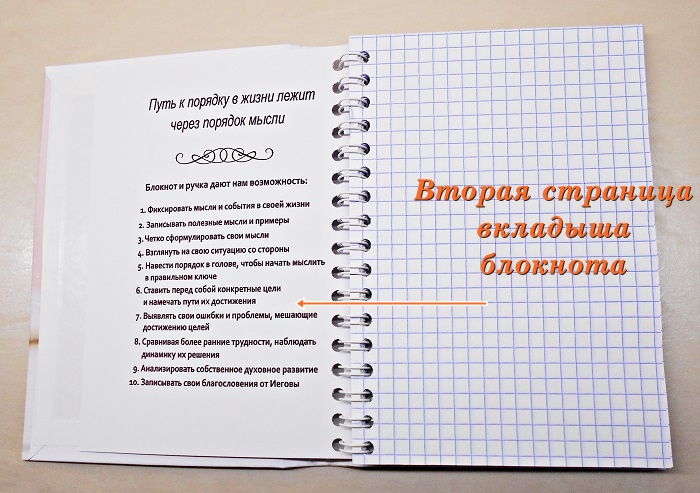 Путь к порядку в жизни лежит
через порядок мысли
Блокнот и ручка дают нам возможность:
1. Фиксировать мысли и события в своей жизни
2. Записывать полезные мысли и примеры
3. Четко сформулировать свои мысли
4. Взглянуть на свою ситуацию со стороны
5. Навести порядок в голове, чтобы начать мыслить
в правильном ключе
6. Ставить перед собой конкретные цели
и намечать пути их достижения
7. Выявлять свои ошибки и проблемы, мешающие
достижению целей
8. Сравнивая более ранние трудности, наблюдать
динамику их решения
9. Анализировать собственное духовное развитие
10. Записывать свои благословения от Иеговы
Вторая страница
вкладыша
блокнота